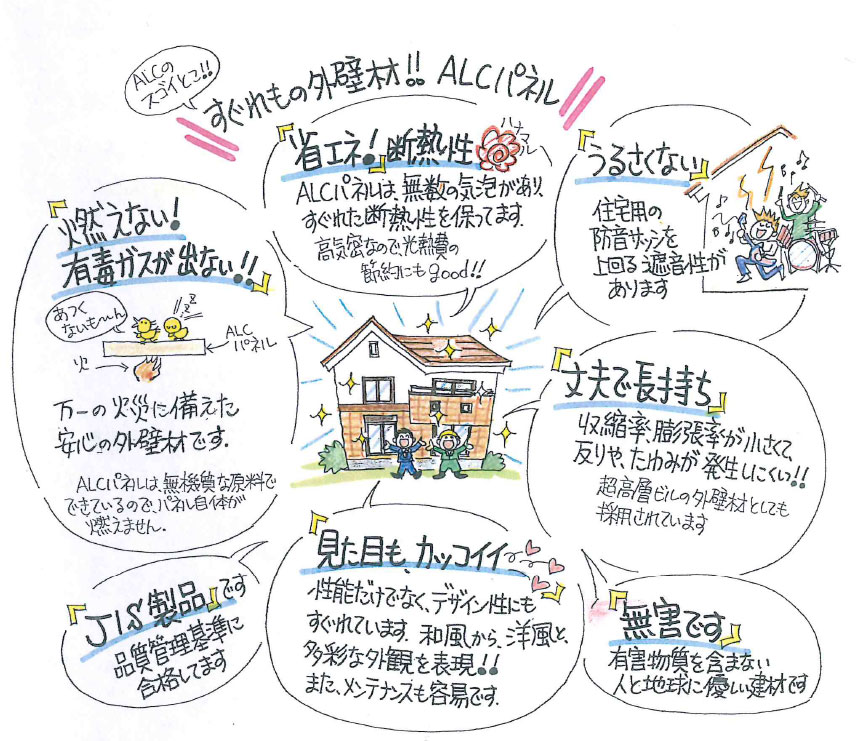 ALCの
スゴイとこ!!
すぐれもの外壁材!! ALCパネル
『省エネ!断熱性』
ハナマル
ALCパネルは、無数の気泡があり、
すぐれた断熱性を保ってます。
高気密なので、光熱費の
節約にもgood!!
『うるさくない』
住宅用の
防音サッシを
上回る遮音性が
あります
『燃えない!
有毒ガスが出ない!!』
あつく
ないも〜ん
z z z
ALC
パネル
火
万一の火災に備えた
安心の外壁材です.
ALCパネルは無機質な原料で
できているので、パネル自体が
燃えません.
『丈夫で長持ち』
収縮率、膨張率が小さくて、
反りや、たゆみが発生しにくい!!
超高層ビルの外壁材としても
採用されています
『見た目も、カッコイイ』
性能だけでなく、デザイン性にも
すぐれています. 和風から、洋風と、
多彩な外観を表現!!
また、メンテナンスも容易です.
『JIS製品』です
品質管理基準に
合格してます
『無害です』
有害物質を含まない
人と地球に優しい建材です